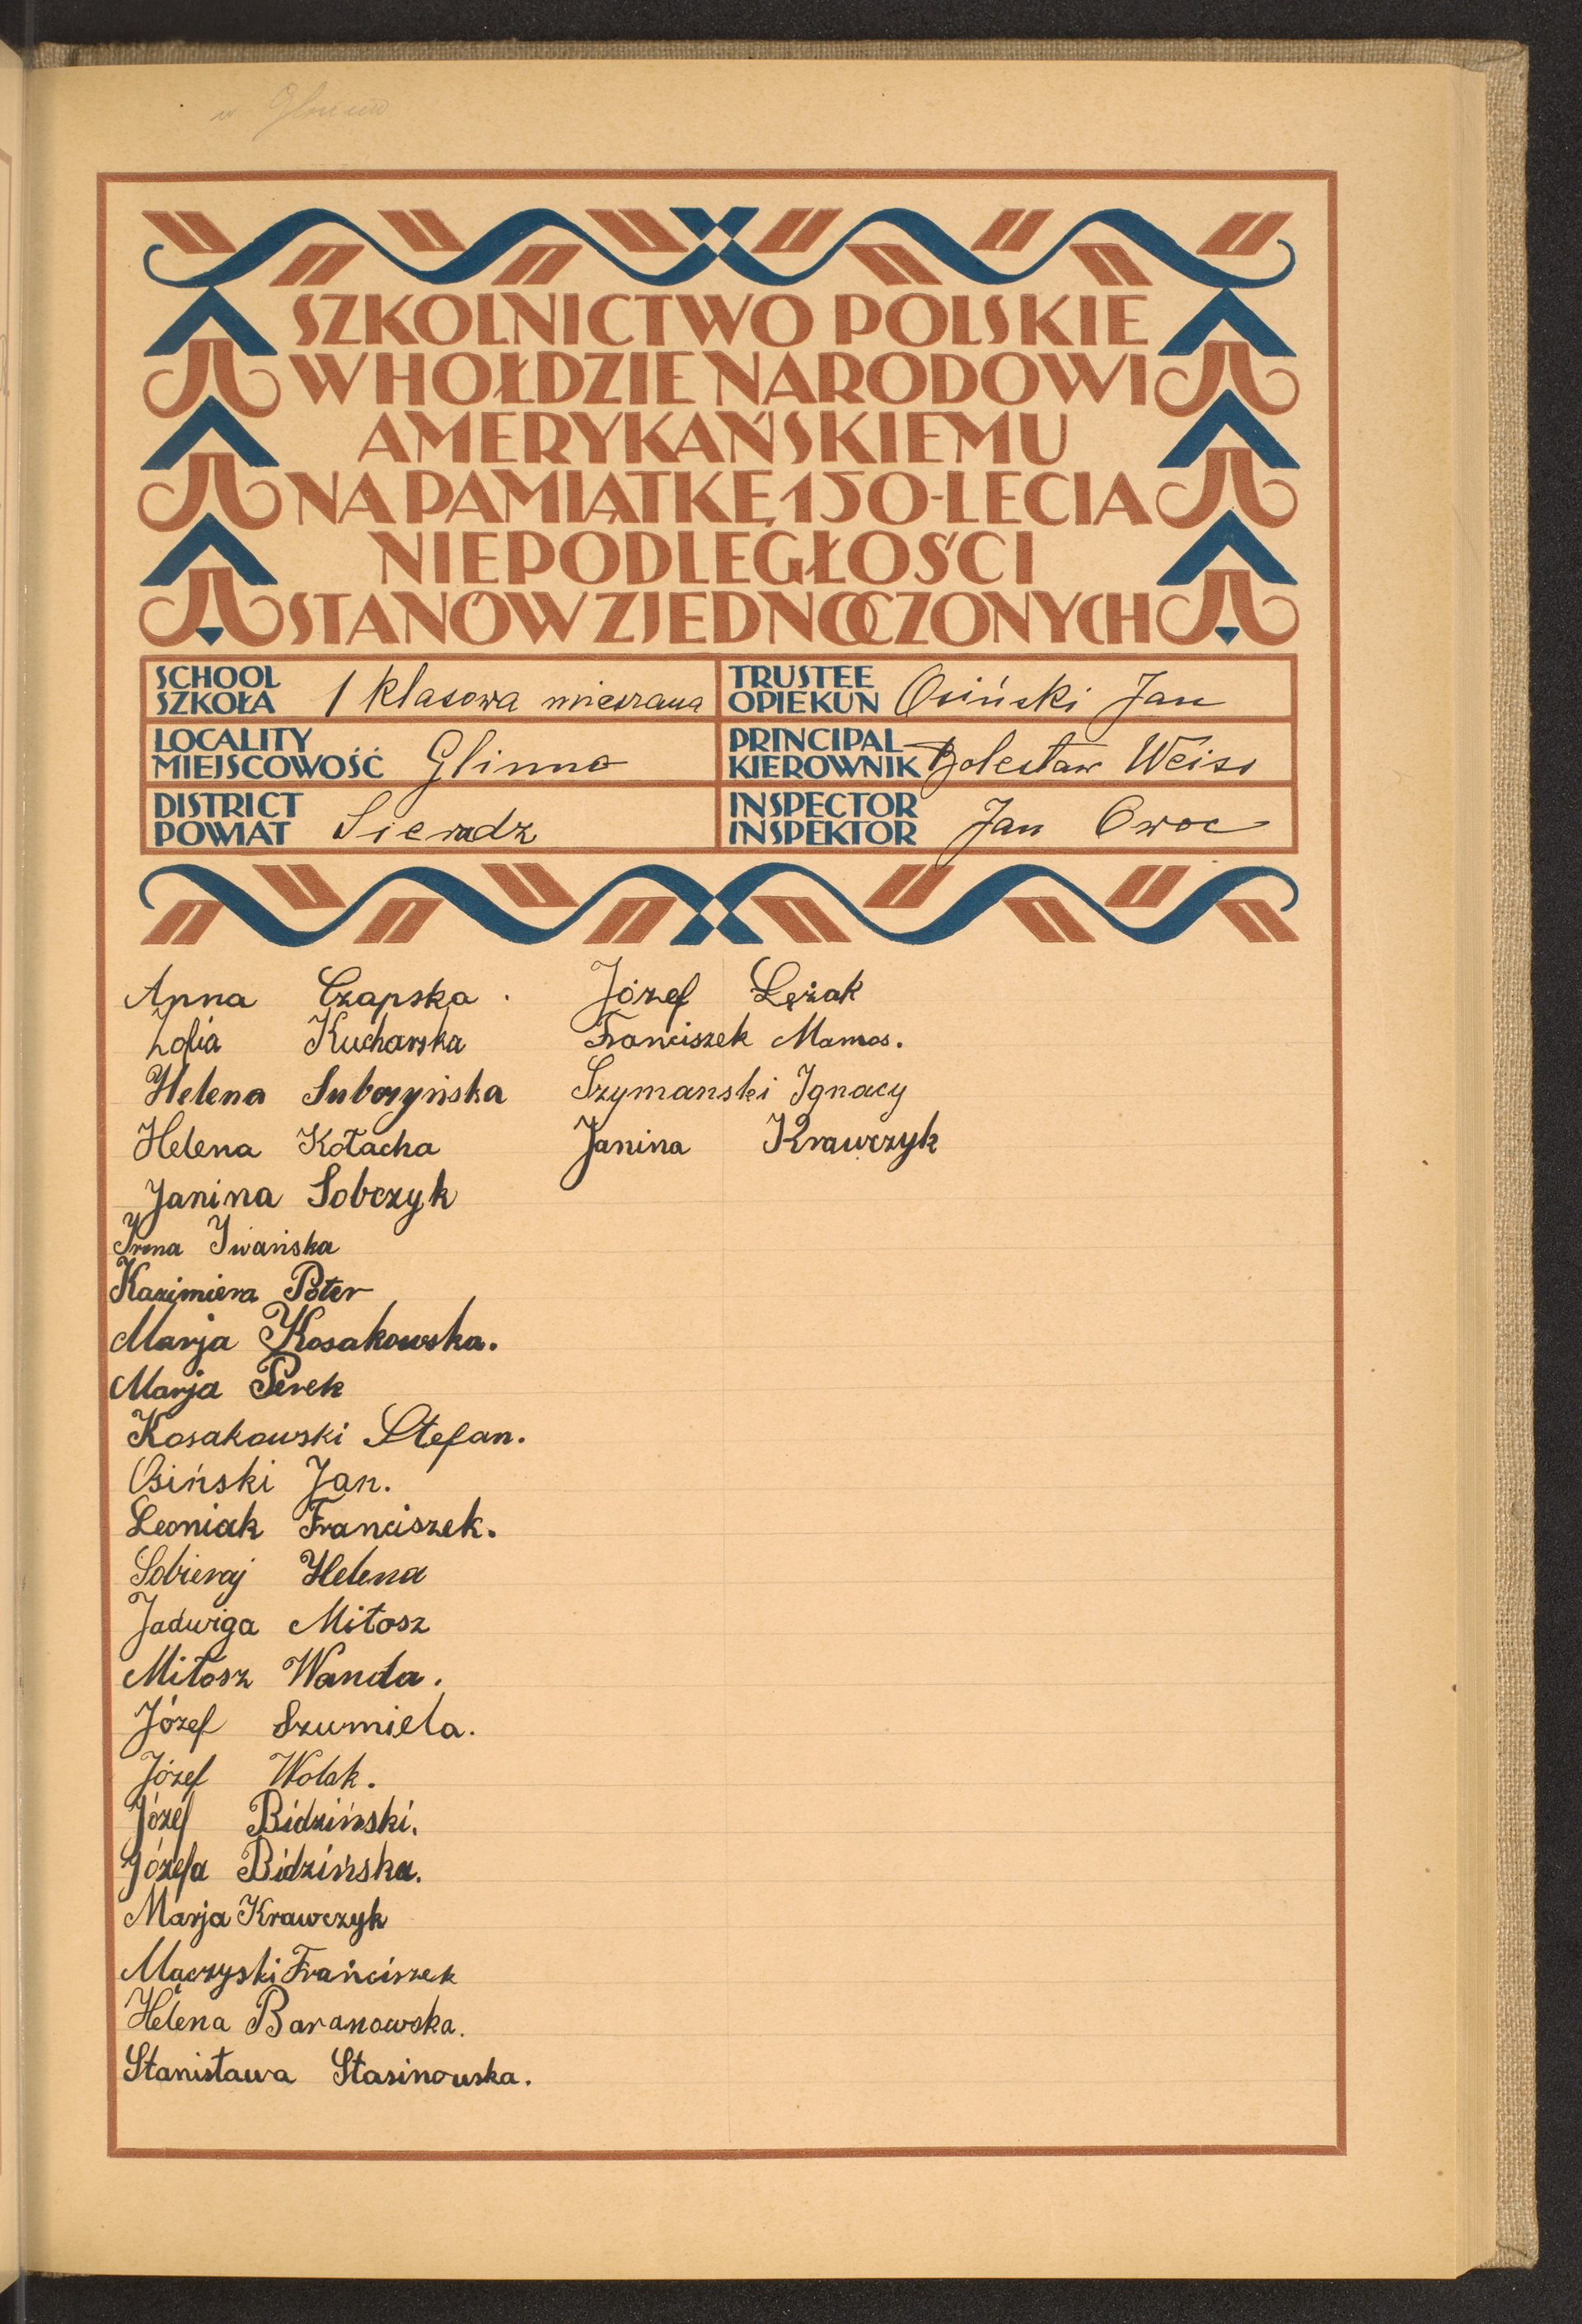 SZKOLNICTWO POLSKIE
W HOŁDZIE NARODOWI
AMERYKAŃSKIEMU
NA PAMIĄTKĘ 150-LECIA
NIEPODLEGŁOŚCI
STANÓW ZJEDNOCZONYCH
SCHOOL
SZKOŁA 1 klasowa mieszana
TRUSTEE
OPIEKUN Osiński Jan
LOCALITY
MIEJSCOWOŚĆ Glinno
PRINCIPAL
KIEROWNIK Bolesław Weiss
DISTRICT
POWIAT Sieradz
INSPECTOR
INSPEKTOR Jan Owoc
Anna Czapska.
Zofia Kucharska
Helena Suboryńska
Helena Kołacha
Janina Sobczyk
Irena Iwańska
Kazimiera Poter
Marja Kosakowska.
Marja Perek
Kosakowski Stefan.
Osiński Jan.
Leoniak Franciszek.
Sobieraj Helena
Jadwiga Miłosz
Miłosz Wanda.
Józef Szumiela.
Józef Wolak.
Józef Bidziński.
Józefa Bidzińska.
Marja Krawczyk
Mączyski Franciszek
Helena Baranowska.
Stanisława Stasinowska.
Józef Leżak
Franciszek Mamos.
Szymanski Ignacy
Janina Krawczyk